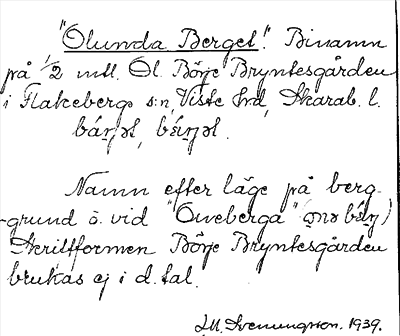 "Olunda Berget". Binamn
på 1/2 mtl. Öl. Börje Bryntesgården
i Flakebergs s:n, Viste hrd, Skarab. l.
Namn efter läge på berg-
-grund o. vid "Oweberga"
Skriftformen Börje Bryntesgården
brukas ej i d. tal.
Svenungsson. 1939.